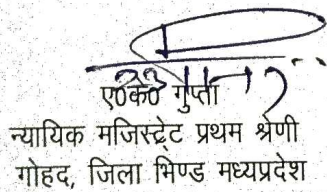 ए०के० गुप्ता
न्यायिक मजिस्ट्रेट प्रथम श्रेणी
गोहद, जिला भिण्ड मध्यप्रदेश